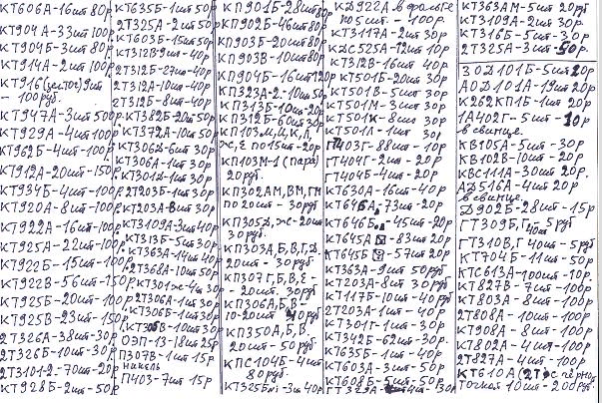 КТ606А-16шт 80р
КТ904А-33шт 100р
КТ904Б-3шт 80р
КТ914А-2шт 100р
КТ916 (желток) 9шт
- 100руб.
КТ947А-3шт 500р
КТ929А-4шт 100р
КТ962Б-4шт-100р
КТ912А-20шт-150р
КТ934Б-4шт-100р
КТ920А-8шт-100р
КТ922А-16шт-100р
КТ925А-22шт-100р
КТ922Б-15шт-100р
КТ922В-56шт-150р
КТ925Б-20шт-100р
КТ925В-23шт-150р
2Т326А-38шт-30р
2Т326Б-10шт-30р
2Т3101-2-70шт-20р
КТ928Б-2шт-50р
КТ635Б-1шт 50р
2Т325А-2шт 50р
КТ603Б-15шт 50р
КТ312В 9шт-40р
2Т312Б-27шт-40р
2Т312А-10шт-40р
2Т312Б-8шт-40р
КТ382Б-20шт 50р
КТ372А-10шт 50р
КТ306Д-6шт 30р
КТ306А-1шт 30р
КТ301Д-1шт 30р
2Т203Б-1шт 30р
КТ203А-8шт 30р
КТ3109А-3шт 40р
КТ313Б-5шт 30р
КТ363А-14шт 40р
2Т368А-10шт 50р
КТ301ж-4шт 30р
2Т306А-1шт 30р
КТ306Б-1шт 30р
КТ306В-10шт 30р
ОЭП-13-18шт 25р
П307В-1шт 15р
никель
П403-7шт 15р
КП901Б-28шт 80р
КП902Б-46шт 80р
КП903Б-20шт 80р
КП903В-10шт 80р
КП904Б-16шт 120р
КП323А-2-10шт 50р
КП313Б-10шт-20р
КП312Б-60шт 30р
КП103М,Д,К,Л,
ж,Е по 15шт-20р
КП103М-1 (пара)
20руб.
КП302АМ,ВМ,ГМ
по 20шт - 30руб
КП305Д,ж-20шт
30руб.
КП303А,Б,В,Г,Д,
20шт - 30руб
КП307Г,Б,В,Е-
- 20шт. 30руб
КП306А,Б,В-
10-20шт 40р
КП350А,Б,В,
20шт - 50руб.
КПС104Б-4шт
80руб.
КТ325Б-3шт 40р
КД922А в фольге
по 5шт - 100р.
КТ3117А-2шт-30р
КДС525А-12шт 10р
КТ312В-16шт 40р
КТ501Б-20шт 30р
КТ501В-5шт 30р
КТ501М-3шт 30р
КТ501К-8шт 30р
КТ501Л-1шт 30р
ГТ403Г-88шт-10р
ГТ404Г-2шт-20р
ГТ404Б-4шт-20р
КТ630А-16шт-40р
КТ646А-73шт-20р
КТ646Б-45шт-20р
КТ645А-83шт 20р
КТ645Б-57шт 20р
КТ363А-9шт 50руб
КТ203А-8шт 30руб
КТ117Б-10шт-40руб
2Т203А-1шт 40р
КТ301Г-1шт-30р
КТ342Б-62шт-30р
КТ635Б-1шт-40р
КТ603А-3шт-50р
КТ608Б-5шт-50р
КТ363АМ-5шт 20руб
КТ3109А-2шт 30р.
КТ316Б-5шт-30р
2Т325А-3шт 50р.
3ОД101Б-5шт 20р
АОД101А-19шт 20р
К262КП1Б-1шт 20р
1А402Г-5шт-10р
в свинце.
КВ105А-5шт-30р
КВ102В-10шт-20р
КВС111А-30шт 20р.
АД516А-4шт 20р
в свинце.
Д902Б-28шт-15р
ГТ309Б,Г 40шт 5руб
ГТ310В,Г 40шт-5руб
КТ704Б-11шт-50р
КТС613А-100шт-10р.
КТ827В-7шт-100р
КТ803А-8шт-100р
2Т808А-10шт-100р
КТ908А-8шт-100р
КТ802А-4шт-100р
2Т827А-4шт-100р
КТ610А (2Т) с чёрной
точкой 10шт-200руб.